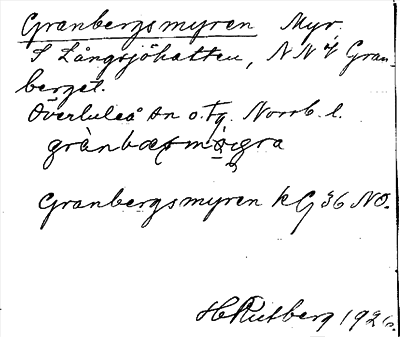 Granbergsmyren Myr,
I Långsjöhatten, NNV Gran-
berget.
Överluleå sn o. Tg. Norrb. l.
Granbergsmyren kG 36 NO.
H Rutberg 1926.